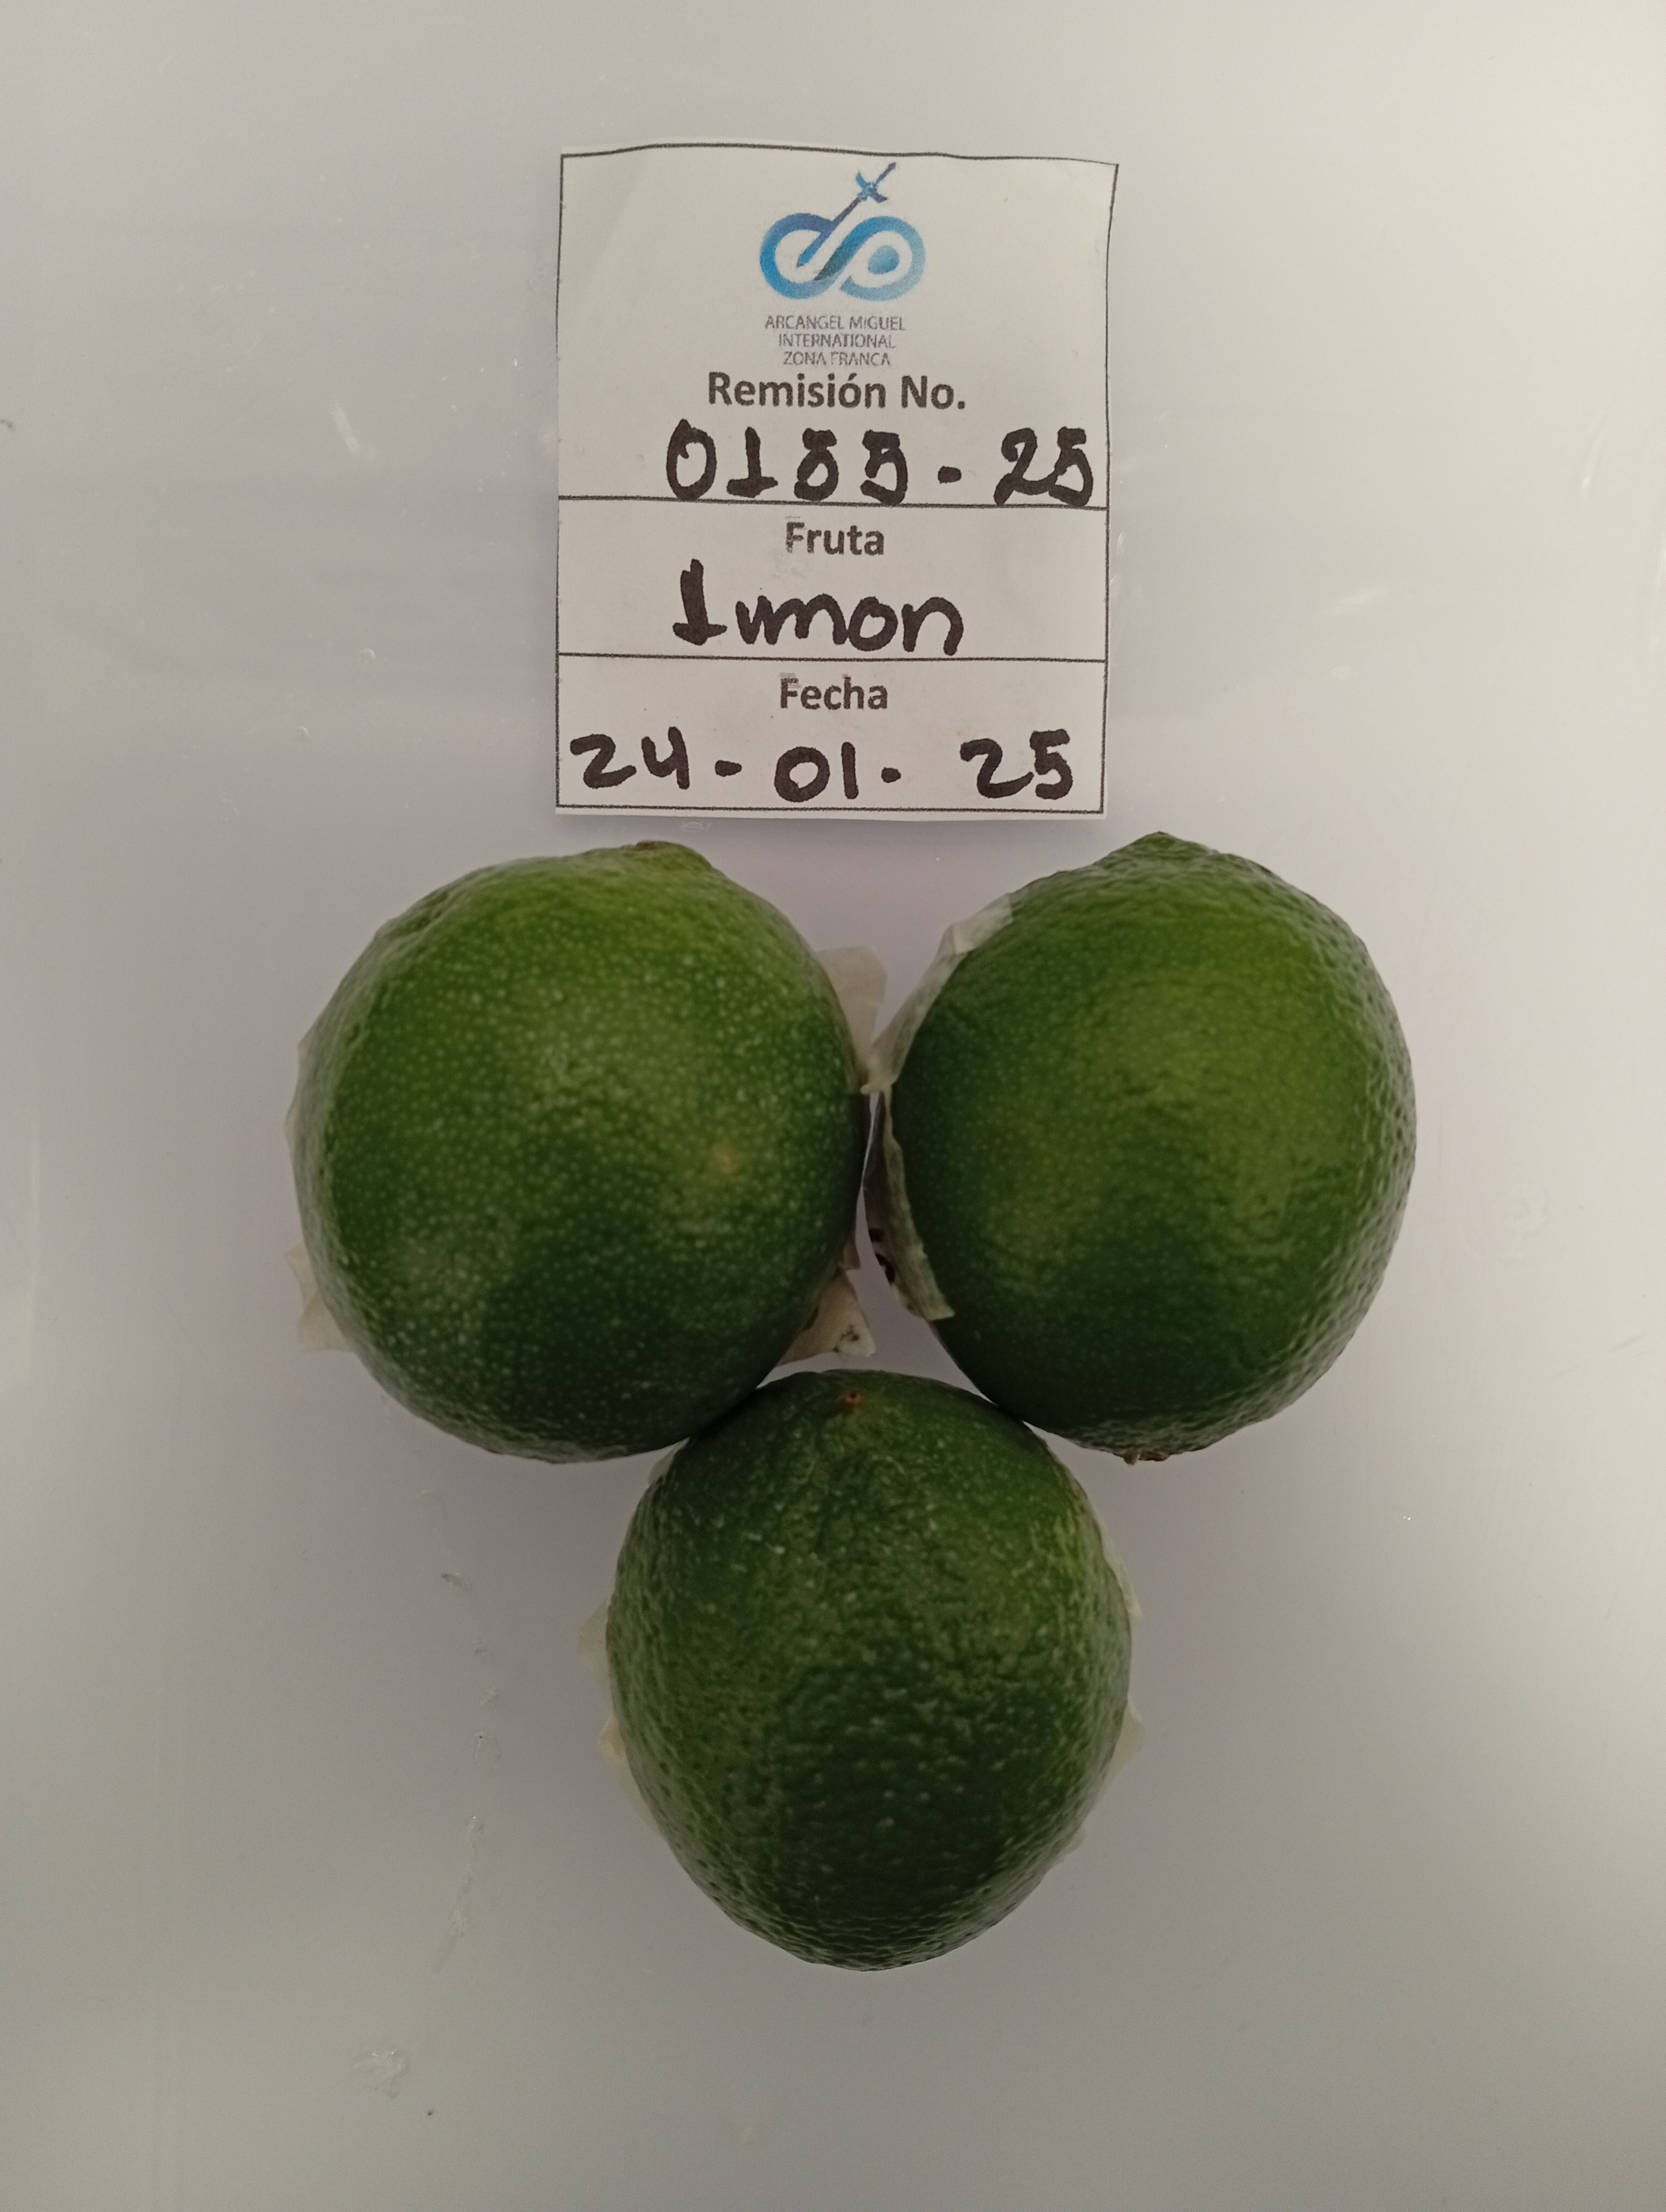 ARCANGEL MIGUEL
INTERNATIONAL
ZONA FRANCA
Remisión No.
0155-25
Fruta
limon
Fecha
24-01-25